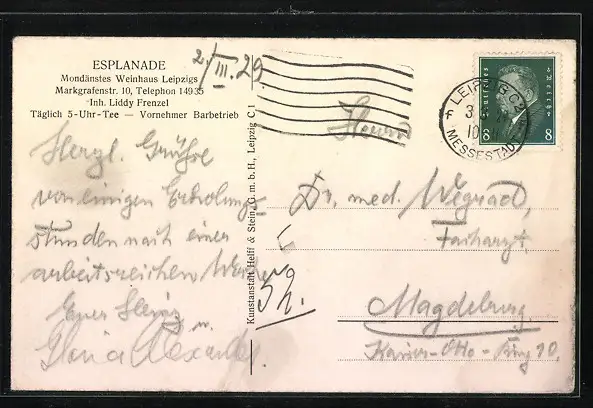 ESPLANADE
Mondänstes Weinhaus Leipzigs
Markgrafenstr. 10, Telephon 14935
Inh. Liddy Frenzel
Täglich 5-Uhr-Tee — Vornehmer Barbetrieb
2/III.29
Herzl. Grüße
von einigen Erholungs-
stunden nach einer
arbeitsreichen
Euer
Kunstanstalt Helff & Stein G.m.b.H., Leipzig C 1
LEIPZIG C2
MESSESTADT
Deutsches Reich
8 8
Herrn
Dr. med.
Facharzt
Magdeburg
Kaiser-Otto-Ring 10.